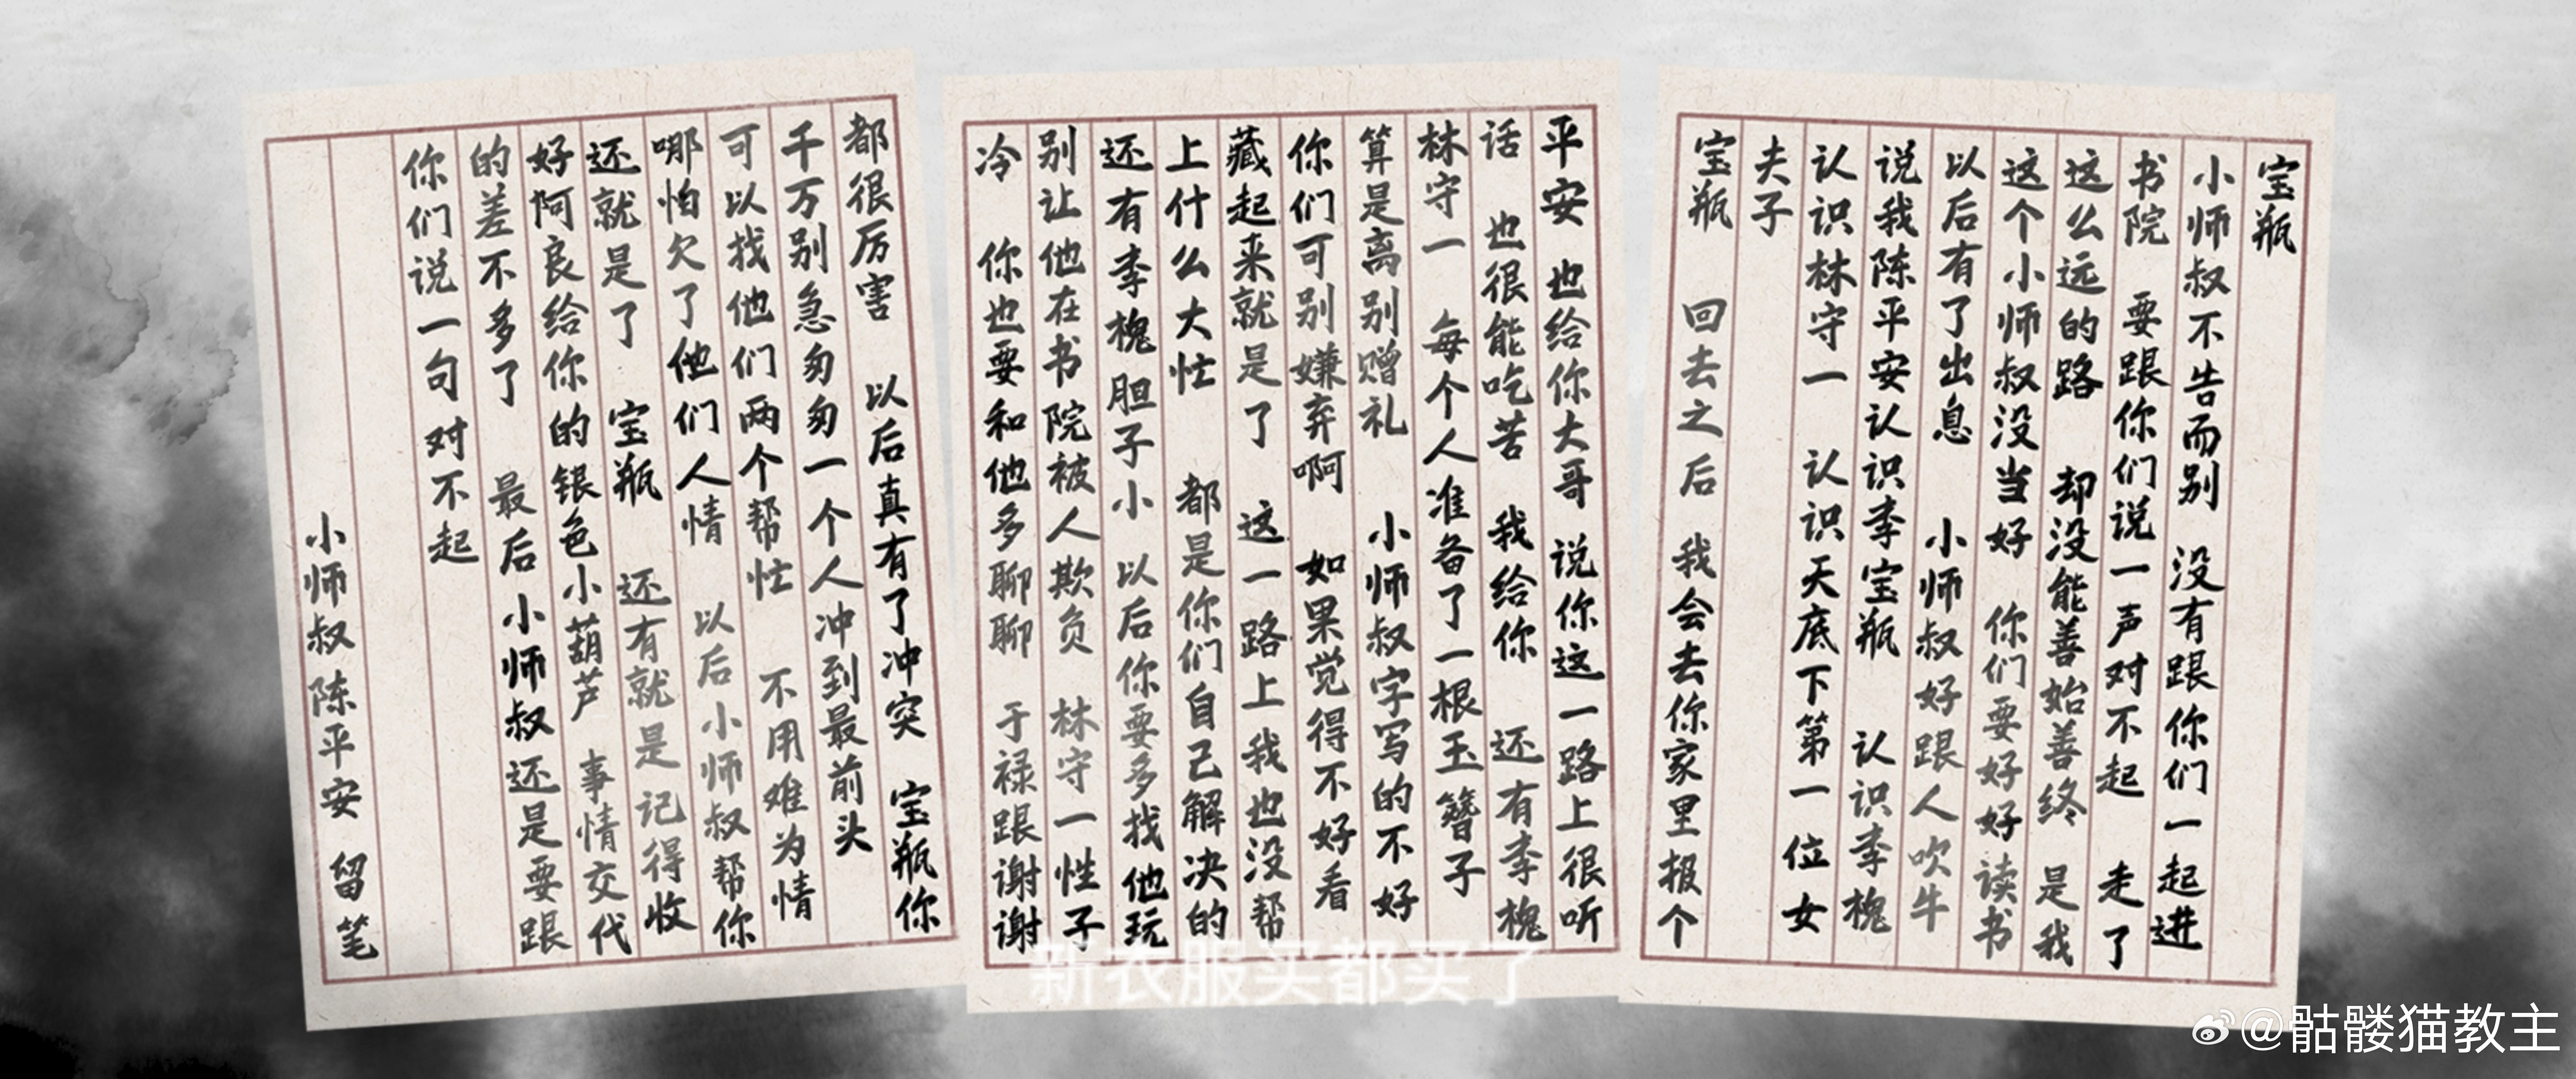 宝瓶
小师叔不告而别 没有跟你们一起进
书院 要跟你们说一声对不起 走了
这么远的路 却没能善始善终 是我
这个小师叔没当好 你们要好好读书
以后有了出息 小师叔好跟人吹牛
说我陈平安认识李宝瓶 认识李槐
认识林守一 认识天底下第一位女
夫子
宝瓶 回去之后 我会去你家里报个
平安 也给你大哥说你这一路上很听
话 也很能吃苦 我给你 还有李槐
林守一 每个人准备了一根玉簪子
算是离别赠礼 小师叔字写的不好
你们可别嫌弃啊 如果觉得不好看
藏起来就是了 这一路上我也没帮
上什么大忙 都是你们自己解决的
还有李槐胆子小 以后你要多找他玩
别让他在书院被人欺负 林守一性子
冷 你也要和他多聊聊 于禄跟谢谢
都很厉害 以后真有了冲突 宝瓶你
千万别急匆匆一个人冲到最前头
可以找他们两个帮忙 不用难为情
哪怕欠了他们人情 以后小师叔帮你
还就是了 宝瓶 还有就是记得收
好阿良给你的银色小葫芦 事情交代
的差不多了 最后小师叔还是要跟
你们说一句对不起
小师叔陈平安 留笔
新衣服买都买了
@骷髅猫教主